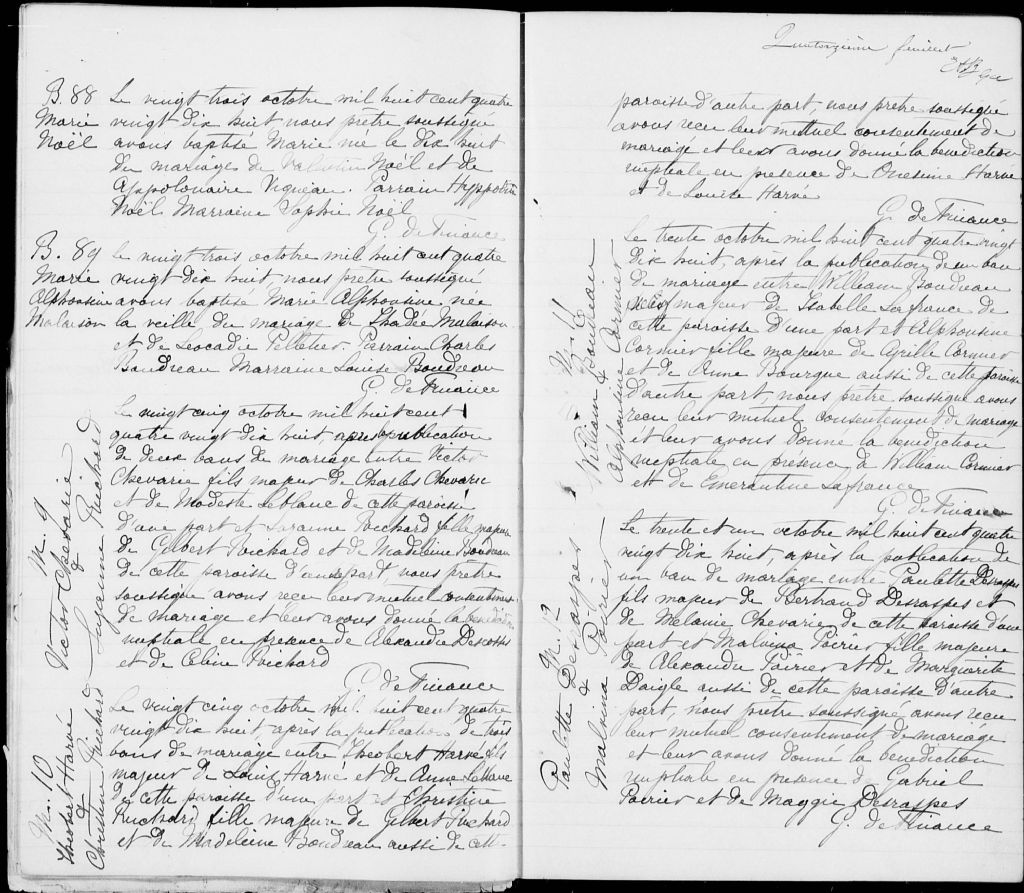 B. 88
Marie
Noël
Le vingt trois octobre mil huit cent quatre
vingt dix huit nous prêtre soussigné
avons baptisé Marie née le dix huit
du mariage de Valentin Noël et de
Appolonaire Vigneau. Parrain Hyppolite
Noël Marraine Sophie Noël
G. de Finance
B. 89
Marie
Alphonsine
Malaison
Le vingt trois octobre mil huit cent quatre
vingt dix huit nous prêtre soussigné
avons baptisé Marie Alphonsine née
la veille du mariage de Thadée Malaison
et de Leocadie Pelletier. Parrain Charles
Boudreau Marraine Louise Boudreau
G. de Finance
M. 9
Victor Chevarie
&
Suzanne Richard
Le vingt cinq octobre mil huit cent
quatre vingt dix huit après publication
de deux bans de mariage entre Victor
Chevarie fils majeur de Charles Chevarie
et de Modeste Leblanc de cette paroisse
d'une part et Suzanne Richard fille majeure
de Gilbert Richard et de Madeleine Boudreau
de cette paroisse d'autre part, nous prêtre
soussigné avons recu leur mutuel consentement
de mariage et leur avons donné la bénédiction
nuptiale en présence de Alexandre
et de Celine Richard
G. de Finance
M. 10
Theobert Harvé
&
Christine Richard
Le vingt cinq octobre mil huit cent quatre
vingt dix huit, après la publication de trois
bans de mariage entre Theobert Harvé fils
majeur de Louis Harvé et de Anne Leblanc
de cette paroisse d'une part et Christine
Richard fille majeure de Gilbert Richard
et de Madeleine Boudreau aussi de cett-
Quatorzième feuillet
paroisse d'autre part, nous prêtre soussigné
avons recu leur mutuel consentement de
mariage et leur avons donné la benediction
nuptiale en presence de Onesime Harvé
et de Louise Harvé
G. de Finance
M. 11
William Boudreau
&
Alphonsine Cormier
Le trente octobre mil huit cent quatre vingt
dix huit, après la publication d'un ban
de mariage entre William Boudreau
veuf majeur de Isabelle Lafrance de
cette paroisse d'une part et Alphonsine
Cormier fille majeure de Cyrille Cormier
et de Anne Bourque aussi de cette paroisse
d'autre part, nous prêtre soussigné avons
recu leur mutuel consentement de mariage
et leur avons donné la benediction
nuptiale en presence de William Cormier
et de Emerentine Lafrance
G. de Finance
M. 12
Paulette Desraspes
&
Malvina Poirier
Le trente et un octobre mil huit cent quatre
vingt dix huit, après la publication de
un ban de mariage entre Paulette Desraspes
fils majeur de Bertrand Desraspes et
de Melanie Chevarie de cette paroisse d'une
part et Malvina Poirier fille majeure
de Alexandre Poirier et de Marguerite
Daigle aussi de cette paroisse d'autre
part, nous prêtre soussigné avons recu
leur mutuel consentement de mariage
et leur avons donné la benediction
nuptiale en presence de Gabriel
Poirier et de Maggie Desraspes
G. de Finance